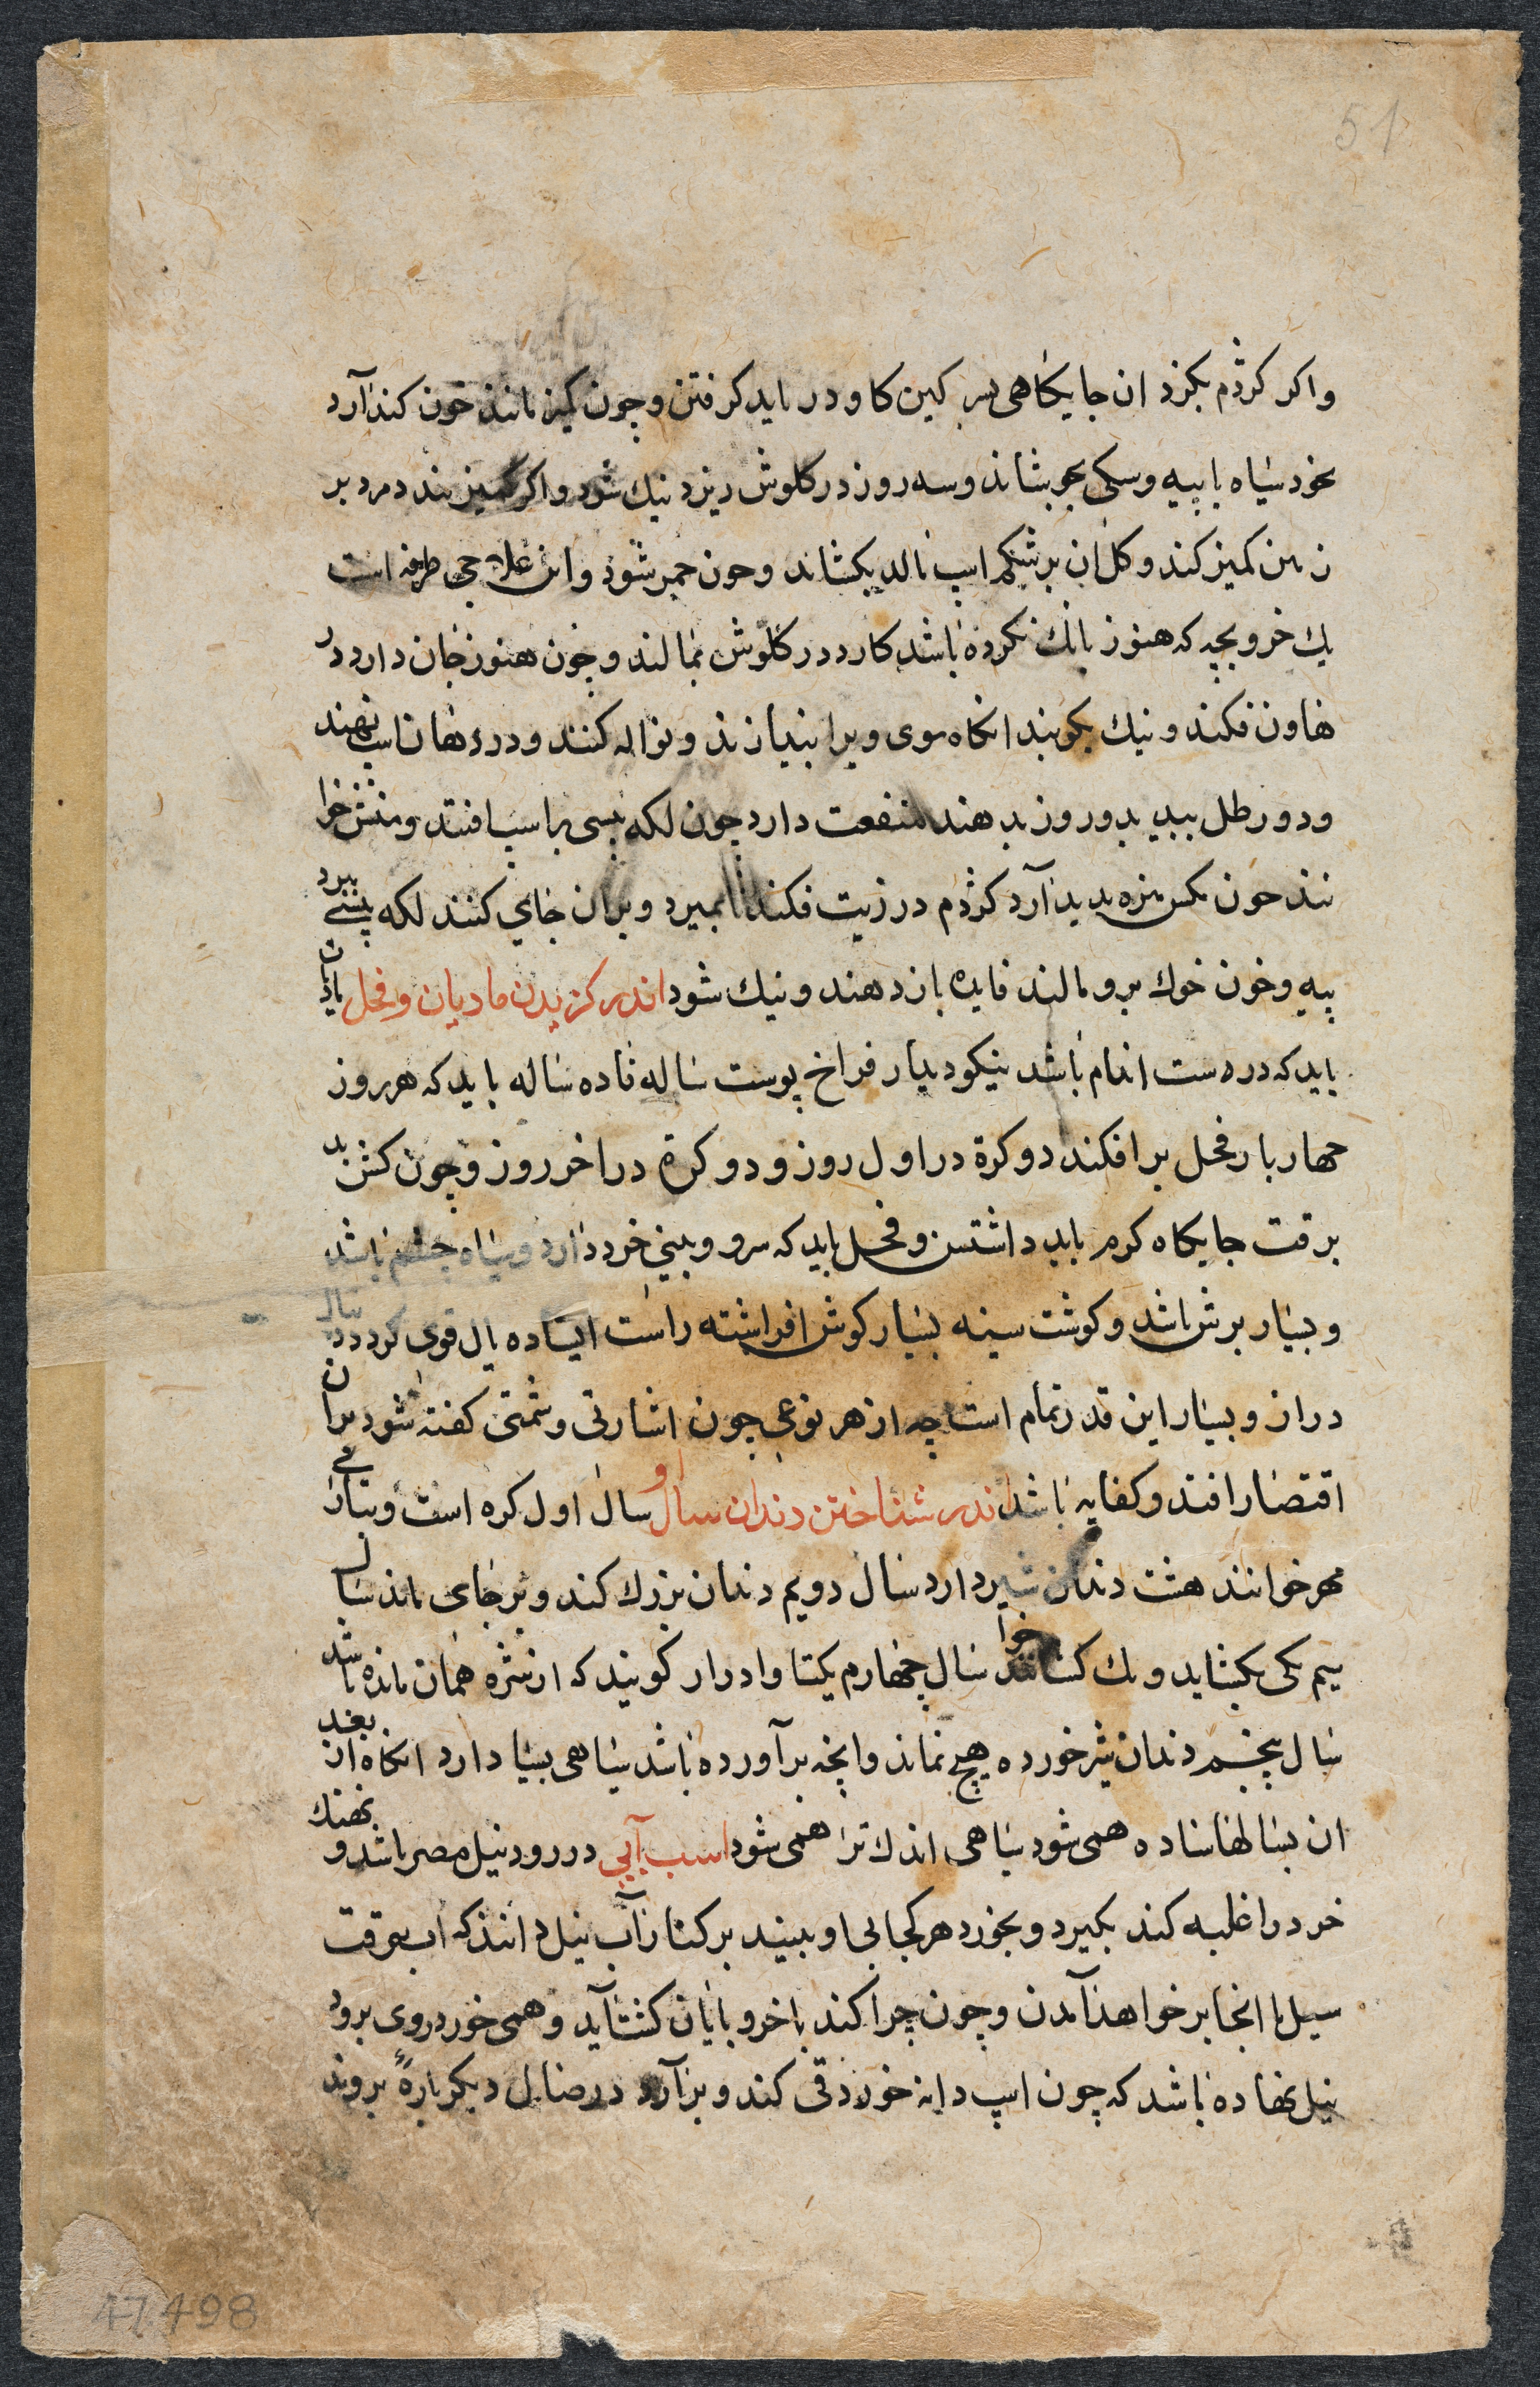 51
واکر کژدم بکزد ان جایکاهی بسر کین کاو در باید کرفتن وجون کمیز مانند خون کند آرد
نخود سیاه با پیه وسکی بجوشاند وسه روز در کلوش ریزد نیك شود واکر کمیز بندد مرد بر
زمین کمیز کند وکل ان برشکم اسپ مالد بکشاند وجون شود واین علاج طرفه است
یك خروبچه که هنوز بانك نکرده باشد کارد در کلوش بمالند وجون هنوز جان دارد در
هاون فکند ونیك بکوبند انکاه موی ویرا بیندازند ونواله کنند ودر دهان اسپ نهند
ودو رطل نبید بدو روز بدهند منفعت دارد جون لکه پیسی بر اسپ افتد
جون مکس بدید آرد کژدم در زیت فکند تا بمیرد وبران جای کنند لکه پیسی ببرد
پیه وخون خوك برو مالند فایده باز دهند ونیك شود اندر کزیدن مادیان وفحل مادیان
باید که درست اندام باشد نیکو دیدار فراخ پوست ساله تا ده ساله باید که هر روز
جهار بار فحل بر افکند دو کرة در اول روز ودو کرة در اخر روز وجون کشن
برقت جایکاه کرم باید داشتن وفحل باید که سرو وبینی خرد دارد وسیاه چشم باشد
وبسیار برش باشد وکوشت سینه بسیار کوش افراشته راست ایستاده یال قوی کرد دنبال
دراز وبسیار این قدر تمام است چه از هر نوعی جون اشارتی وشمتی کفته شود بران
اقتصار افتد وکفایه باشد اندر شناختن دندان سال او سال اول کره است وبتازی
مهر خوانند هشت دندان شیر دارد سال دویم دندان بزرك کند وبر جای ماند سال
سیم یکی بکشاید ویك کشا خوانند سال جهارم یکتا وادرار کویند که از شره همان مانده باشد
سال پنجم دندان شیر خورده هیچ نماند وانچه برآورده باشد سیاهی بسیار دارد انکاه از بعد
ان بسالها ساده همی شود سیاهی اندك تر همی شود اسب آبی در رود نیل مصر باشد ونهنك
خرد را غلبه کند بکیرد وبخورد هر کجا بی او ببیند بر کنار آب نیل دانند که اب بوقت
سیل تا انجا بر خواهد آمدن وجون چرا کند با خر وبایان کشت آید وهمی خورد روی برود
نیل نهاده باشد که چون اسپ دانه خورد قی کند وبر آرد در سال دیکر باره بروند
47.498